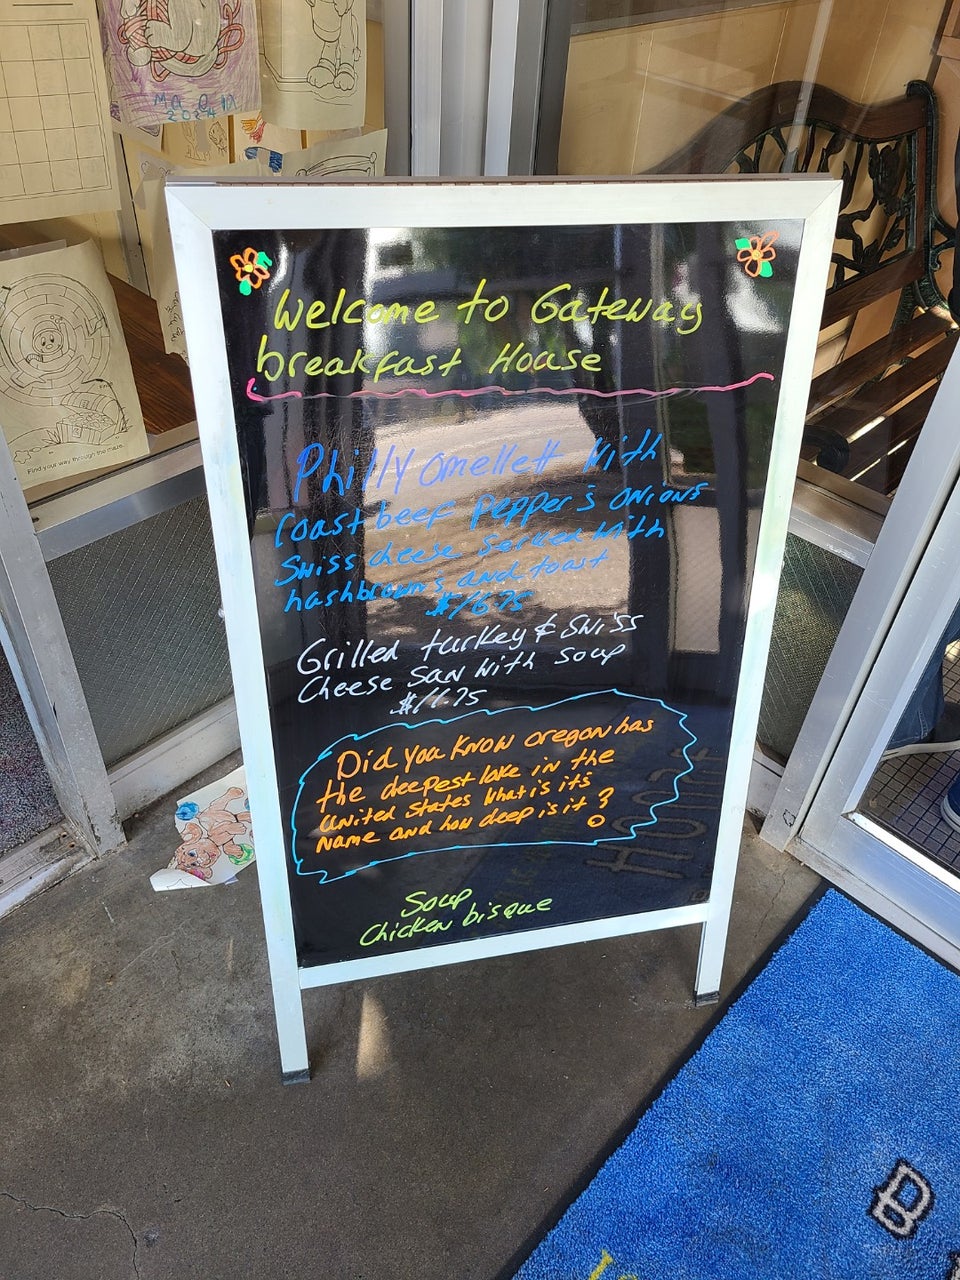 Ma
2024
Find your way through the maze.
Welcome to Gateway
breakfast House
Philly omellett With
roast beef Pepper's onions
Swiss cheese served With
hashbrowns and toast
$16.75
Grilled turkey & Swiss
Cheese San With soup
$16.75
Did you Know oregon has
the deepest lake in the
United States What is its
Name and how deep is it?
Soup
Chicken bisque
B